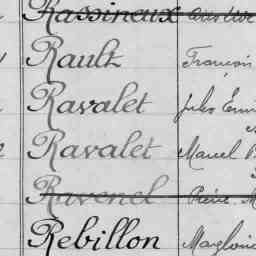 Rassineux
Rault François
Ravalet Jules
Ravalet Marcel
Ravenel Pierre M
Rebillon